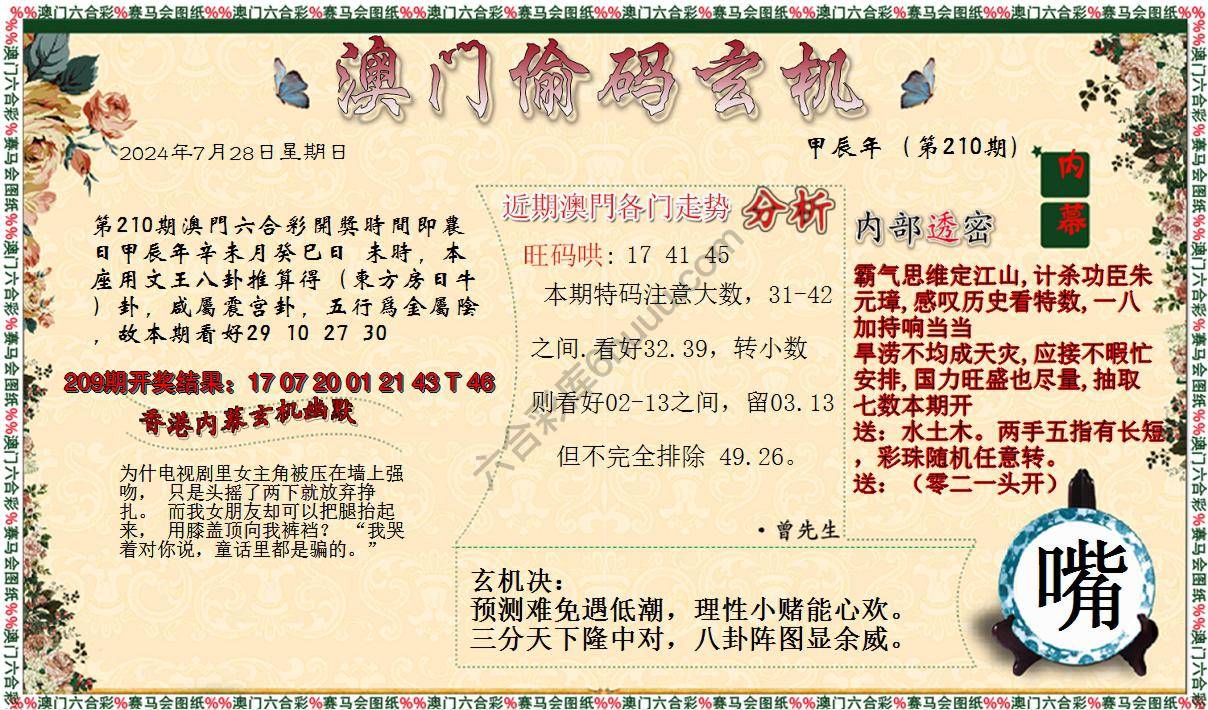 %%澳门六合彩%赛马会图纸%%澳门六合彩%赛马会图纸%%澳门六合彩%赛马会图纸%%澳门六合彩%赛马会图纸%%澳门六合彩%赛马会图纸%%澳门六合彩%赛马会图纸%%
澳门偷码玄机
2024年7月28日星期日
甲辰年（第210期）
内
幕
第210期澳門六合彩開獎時間即農
日甲辰年辛未月癸巳日 未時，本
座用文王八卦推算得（東方房日牛
）卦，咸屬震宫卦，五行爲金屬陰
，故本期看好29 10 27 30
209期开奖结果：17 07 20 01 21 43 T 46
香港内幕玄机幽默
为什电视剧里女主角被压在墙上强
吻， 只是头摇了两下就放弃挣
扎。 而我女朋友却可以把腿抬起
来， 用膝盖顶向我裤裆？ “我哭
着对你说，童话里都是骗的。”
近期澳門各门走势 分析
旺码哄: 17 41 45
本期特码注意大数，31-42
之间.看好32.39，转小数
则看好02-13之间，留03.13
但不完全排除 49.26。
·曾先生
内部透密
霸气思维定江山,计杀功臣朱
元璋,感叹历史看特数,一八
加持响当当
旱涝不均成天灾,应接不暇忙
安排,国力旺盛也尽量,抽取
七数本期开
送：水土木。两手五指有长短
，彩珠随机任意转。
送：（零二一头开）
玄机决：
预测难免遇低潮，理性小赌能心欢。
三分天下隆中对，八卦阵图显余威。
嘴
六合彩库61uuu.com
%%澳门六合彩%赛马会图纸%%澳门六合彩%赛马会图纸%%澳门六合彩%赛马会图纸%%澳门六合彩%赛马会图纸%%澳门六合彩%赛马会图纸%%澳门六合彩%赛马会图纸%%